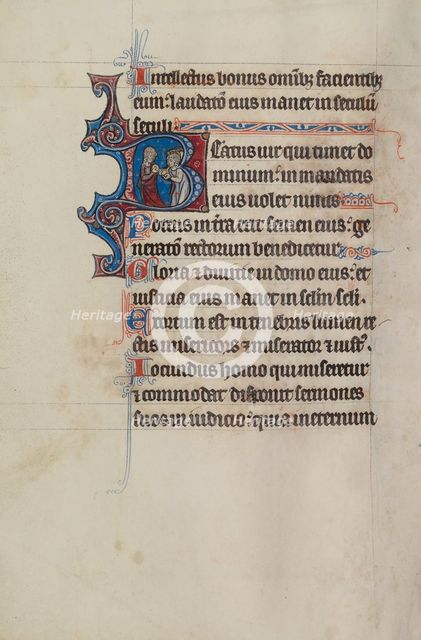 Intellectus bonus omībꝫ facientibꝫ
eum: laudatō eius manet in seculū
seculi
Beatus uir qui timet do
minum: in mandatis
eius uolet nimis
Potens in terra erit semen eius: ge
neratō rectorum benedicetur
Gloria ⁊ diuitie in domo eius: et
iusticia eius manet in sc̄lm sc̄li.
Exortum est in tenebris lumen re
ctis misericors ⁊ miserator ⁊ iustꝰ.
Iocundus homo qui miseretur
⁊ commodat disponit sermones
suos in iudicio: quia in eternum
Heritage
Heritage
Heritage
Images